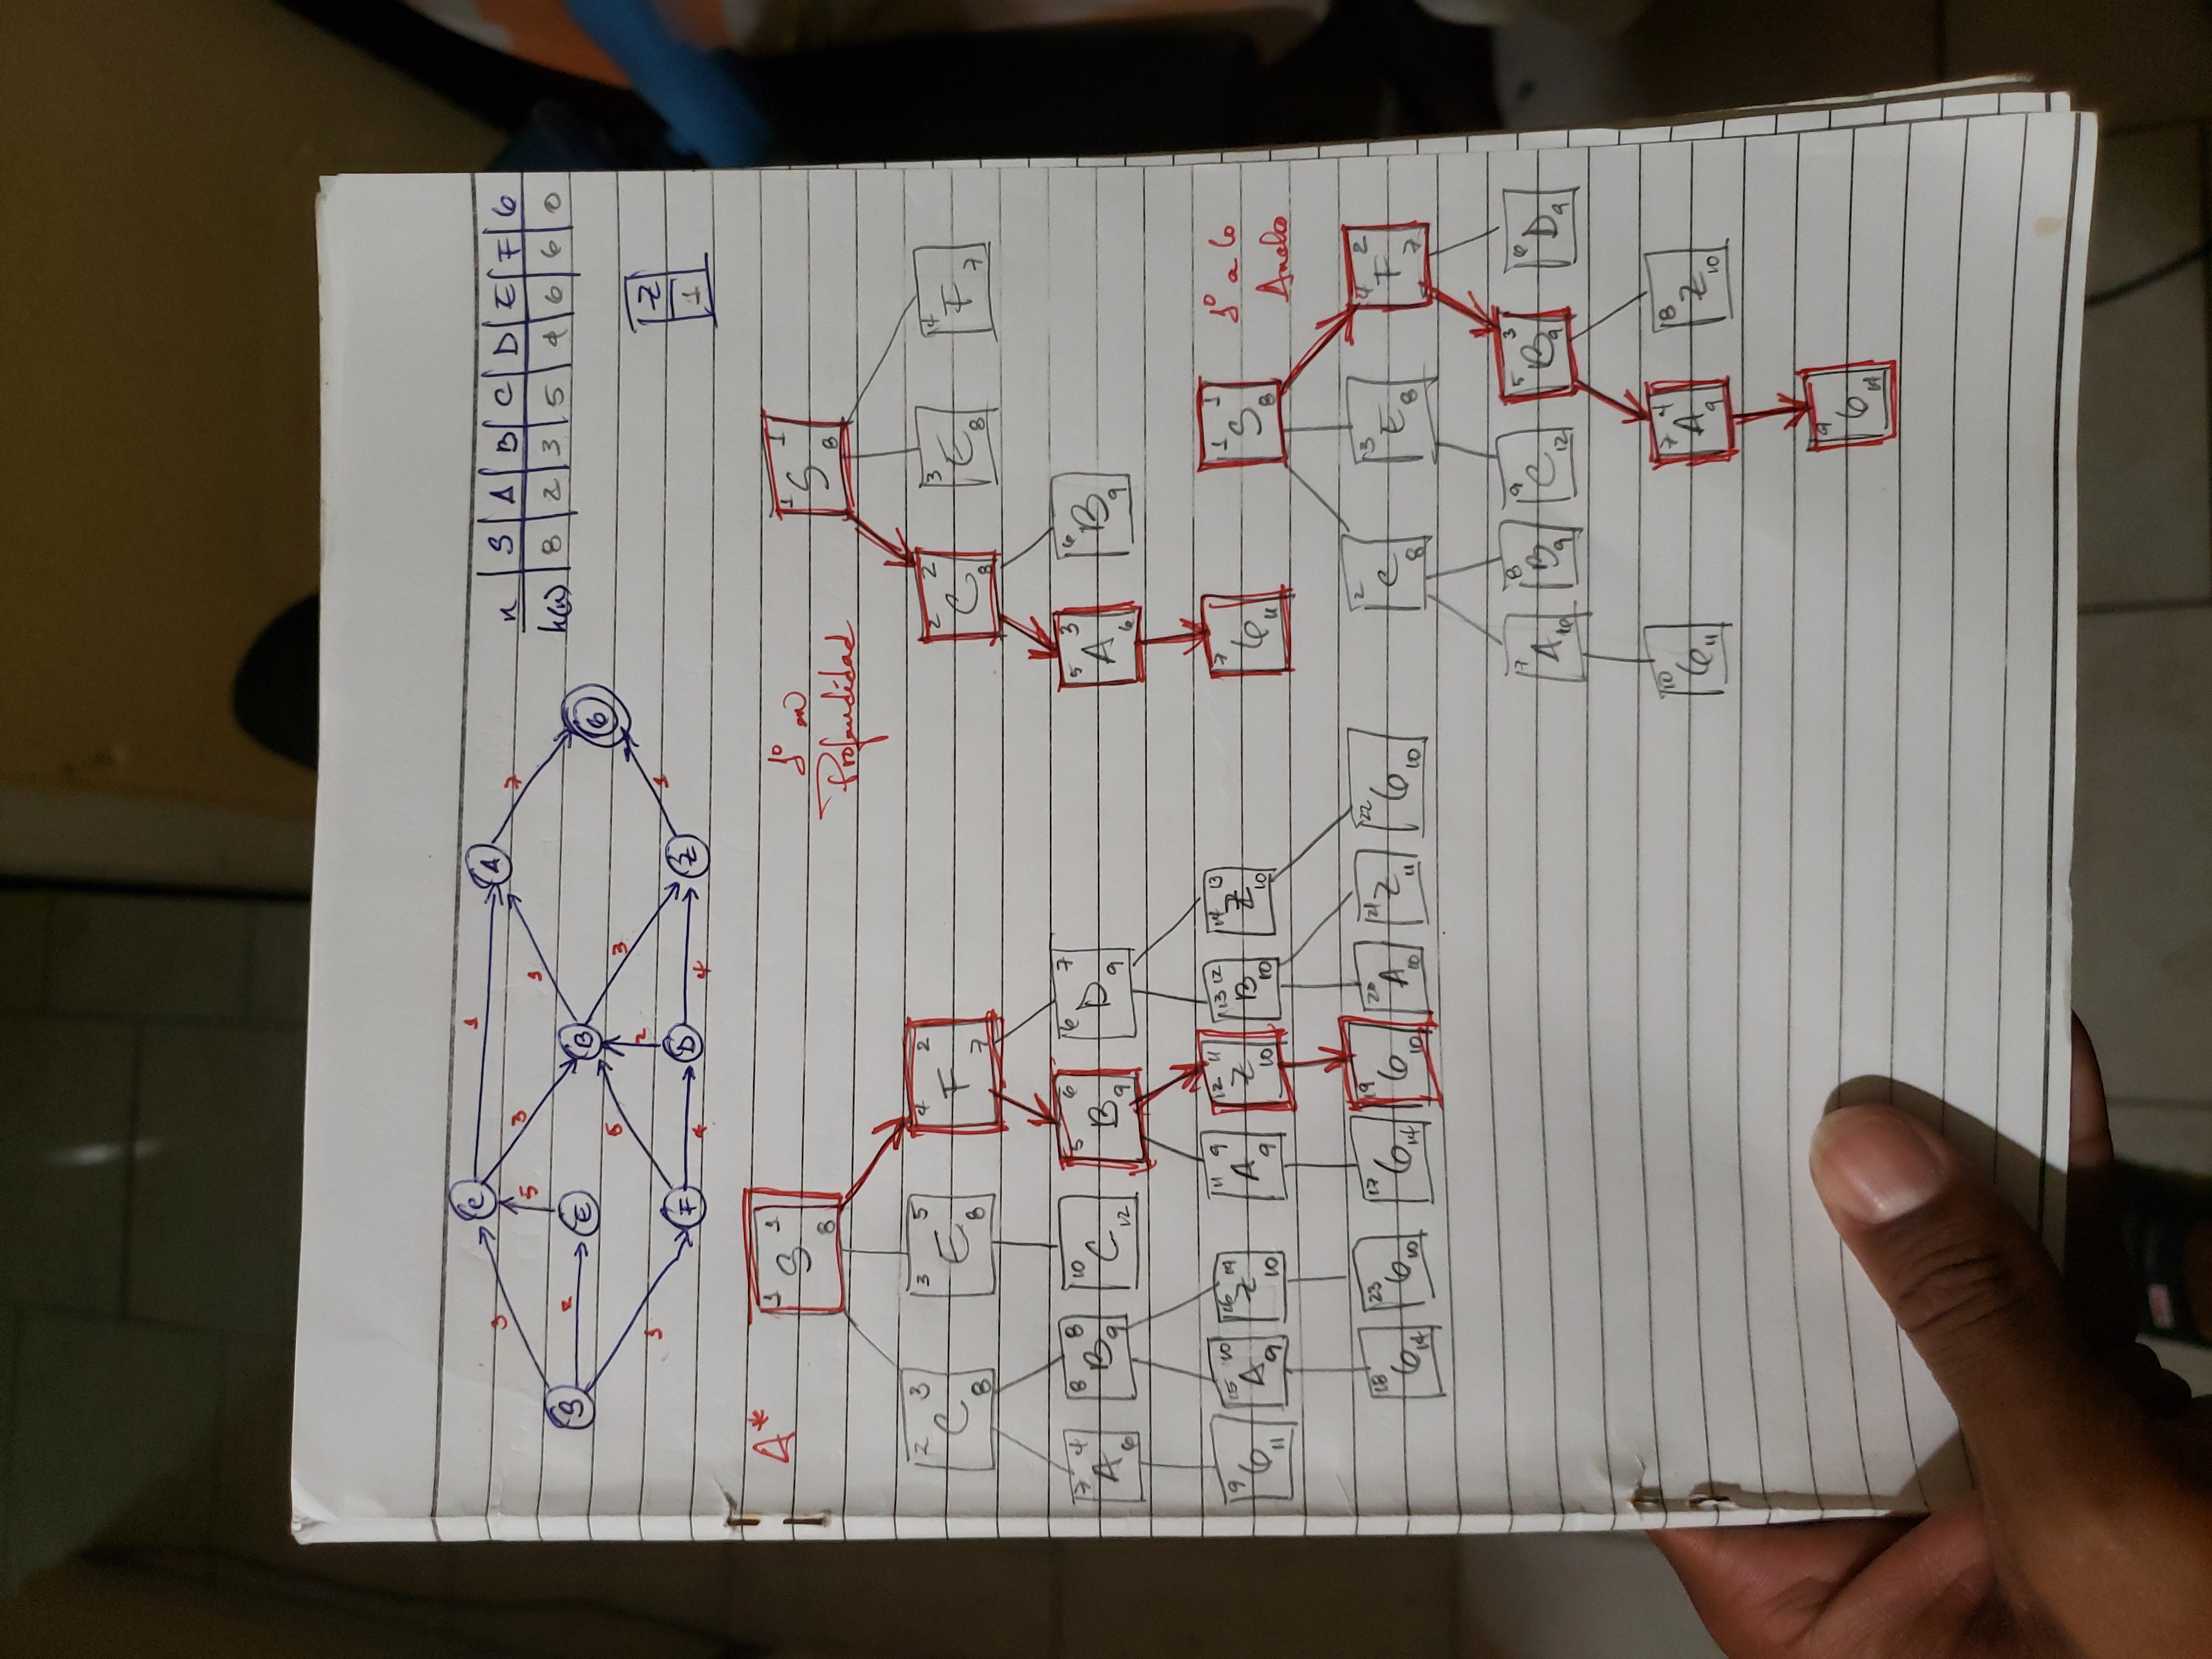 C 1 A
3 3 1 7
5
S 2 E B G
1 6 2 3 1
F 4 D 4 Z
n S A B C D E F G
h(n) 8 2 3 5 4 6 6 0
Z
1
A*
1 S 1 8
2 C 3 8
3 E 5 8
4 F 2 7
7 A 4 6
8 B 8 9
10 C 12
5 B 6 9
6 D 7 9
9 G 11
15 A 10 9
16 Z 14 10
11 A 9 9
12 Z 11 10
13 B 12 10
14 Z 13 10
18 G 14
23 G 10
17 G 14
19 G 10
20 A 10
21 Z 11
22 G 10
1° en
Profundidad
1 S 1 8
2 C 2 8
3 E 8
4 F 7
5 A 3 6
6 B 9
7 G 11
1° a lo
Ancho
1 S 1 8
2 C 8
3 E 8
4 F 2 7
7 A 10
8 B 9
9 C 12
5 B 3 9
6 D 9
10 G 11
7 A 4 9
8 Z 10
9 G 14